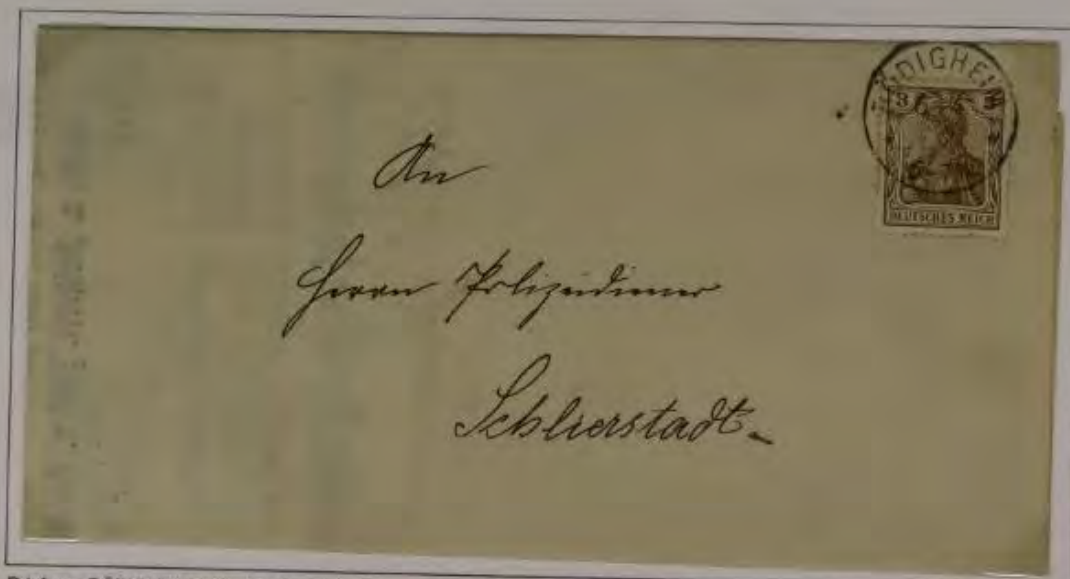 ÖDIGHEIM
3 3
DEUTSCHES REICH
An
Herrn Polizeidiener
Schlierstadt